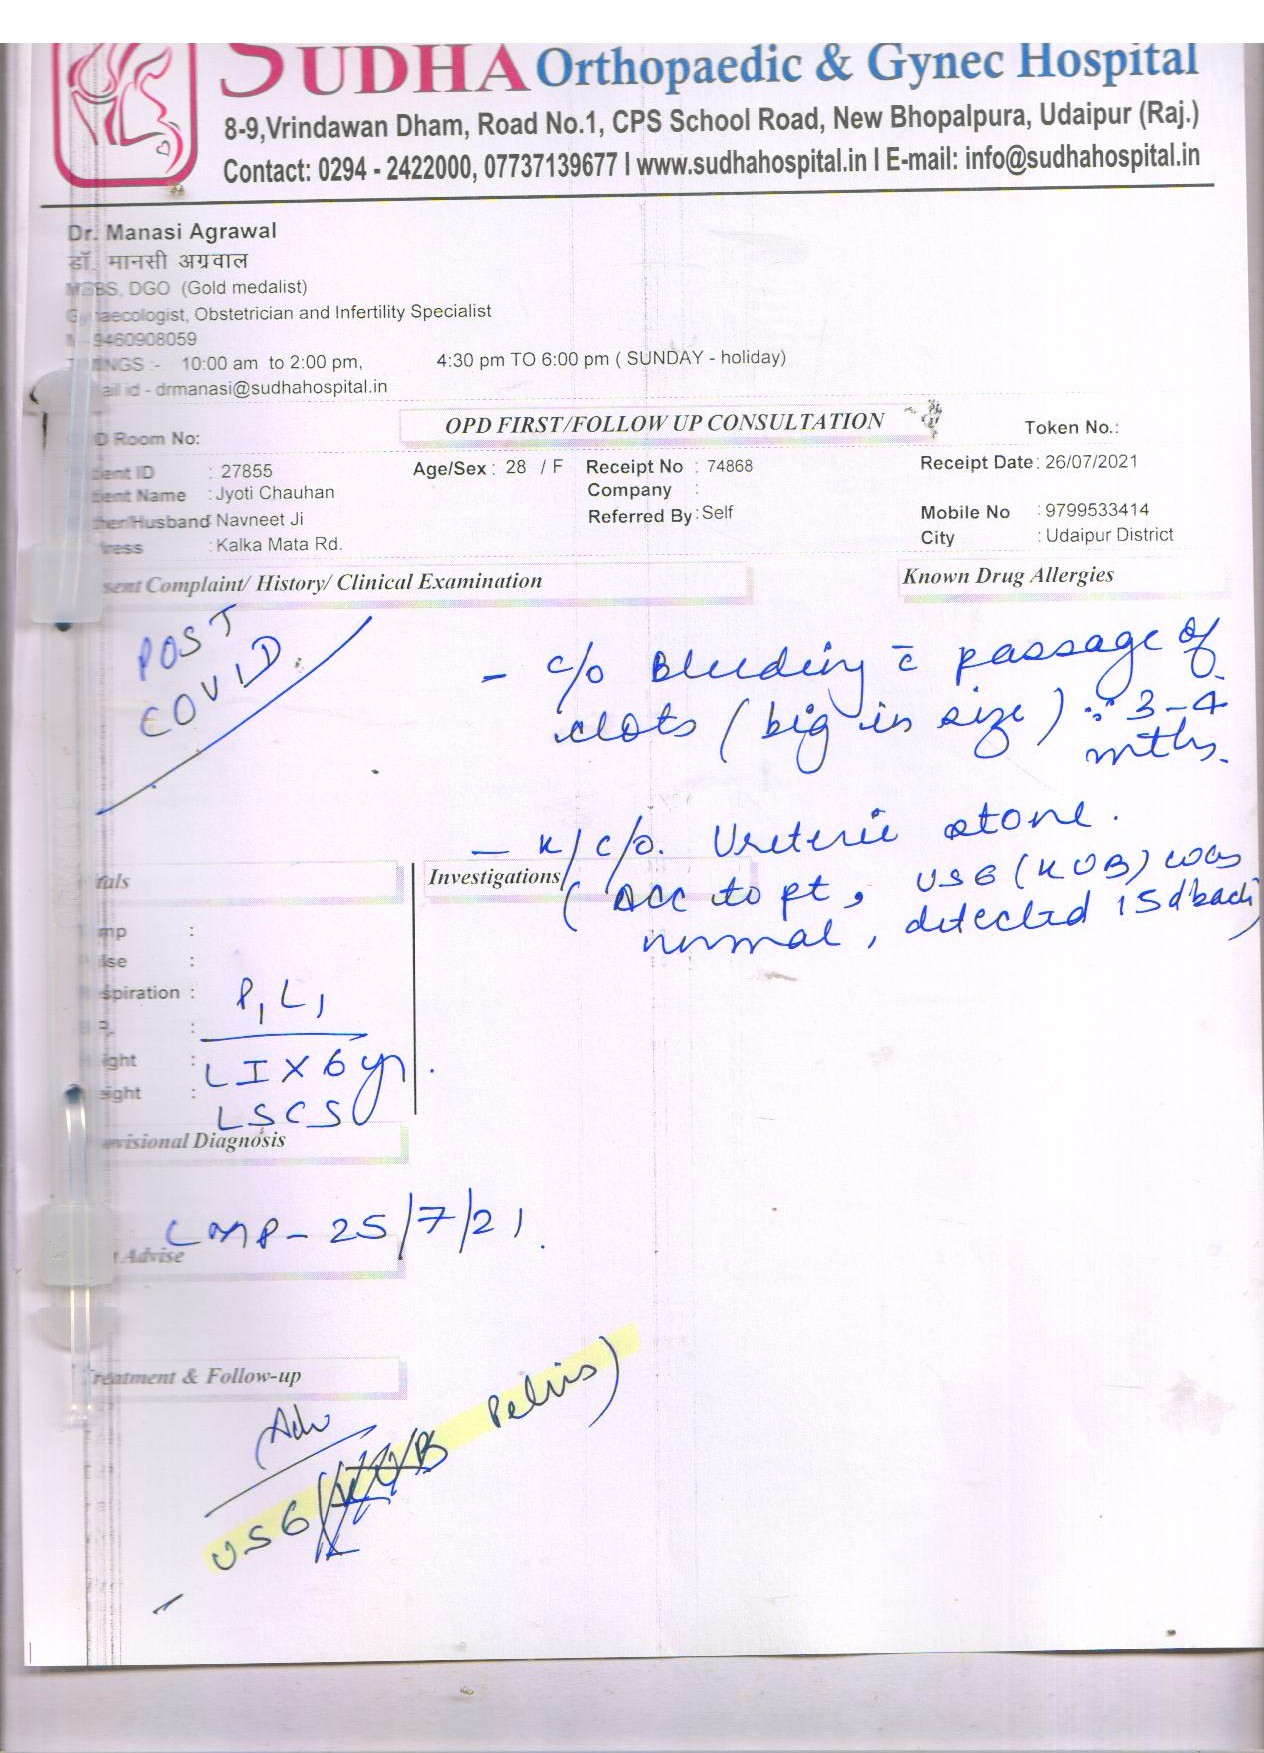 SUDHA Orthopaedic & Gynec Hospital
8-9,Vrindawan Dham, Road No.1, CPS School Road, New Bhopalpura, Udaipur (Raj.)
Contact: 0294 - 2422000, 07737139677 I www.sudhahospital.in I E-mail: info@sudhahospital.in
Dr. Manasi Agrawal
डॉ. मानसी अग्रवाल
MBBS, DGO (Gold medalist)
Gynaecologist, Obstetrician and Infertility Specialist
9460908059
TIMINGS :- 10:00 am to 2:00 pm, 4:30 pm TO 6:00 pm ( SUNDAY - holiday)
ail id - drmanasi@sudhahospital.in
OPD FIRST/FOLLOW UP CONSULTATION
D Room No: Token No.:
tient ID : 27855 Age/Sex : 28 / F Receipt No : 74868 Receipt Date : 26/07/2021
tient Name : Jyoti Chauhan Company :
ther/Husband Navneet Ji Referred By : Self Mobile No : 9799533414
dress : Kalka Mata Rd. City : Udaipur District
sent Complaint/ History/ Clinical Examination Known Drug Allergies
POST
COVID
- c/o Bleeding c̄ passage of
clots (big in size) ∵ 3-4
mths.
- k/c/o. Ureteric stone.
(Acc to pt, USG (KUB) was
normal, detected 15d back)
itals Investigations
mp :
lse :
spiration :
P1L1
ight :
LI X 6 yr.
eight :
LSCS
ovisional Diagnosis
LMP - 25/7/21.
Advise
Treatment & Follow-up
Adv
- USG ( Pelvis)